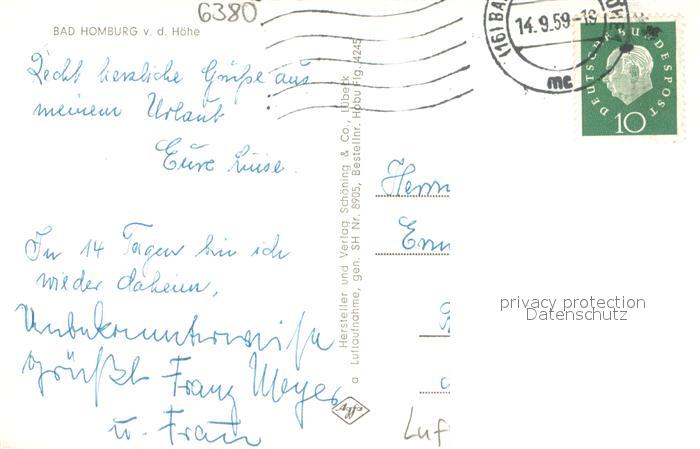 6380
BAD HOMBURG v. d. Höhe
Recht herzliche Grüße aus
meinem Urlaub
Eure Luise.
In 14 Tagen bin ich
wieder daheim,
Unbekannterweise
grüßt Franz Meyer
u. Frau
a Luftaufnahme, gen. SH Nr. 8905, Bestellnr. Hobu Flg. 4245
Hersteller und Verlag Schöning & Co., Lübeck
Agfa
(16) BA
14.9.59-18
mc
DEUTSCHE BUNDESPOST
10
Herrn
privacy protection
Datenschutz
Luf